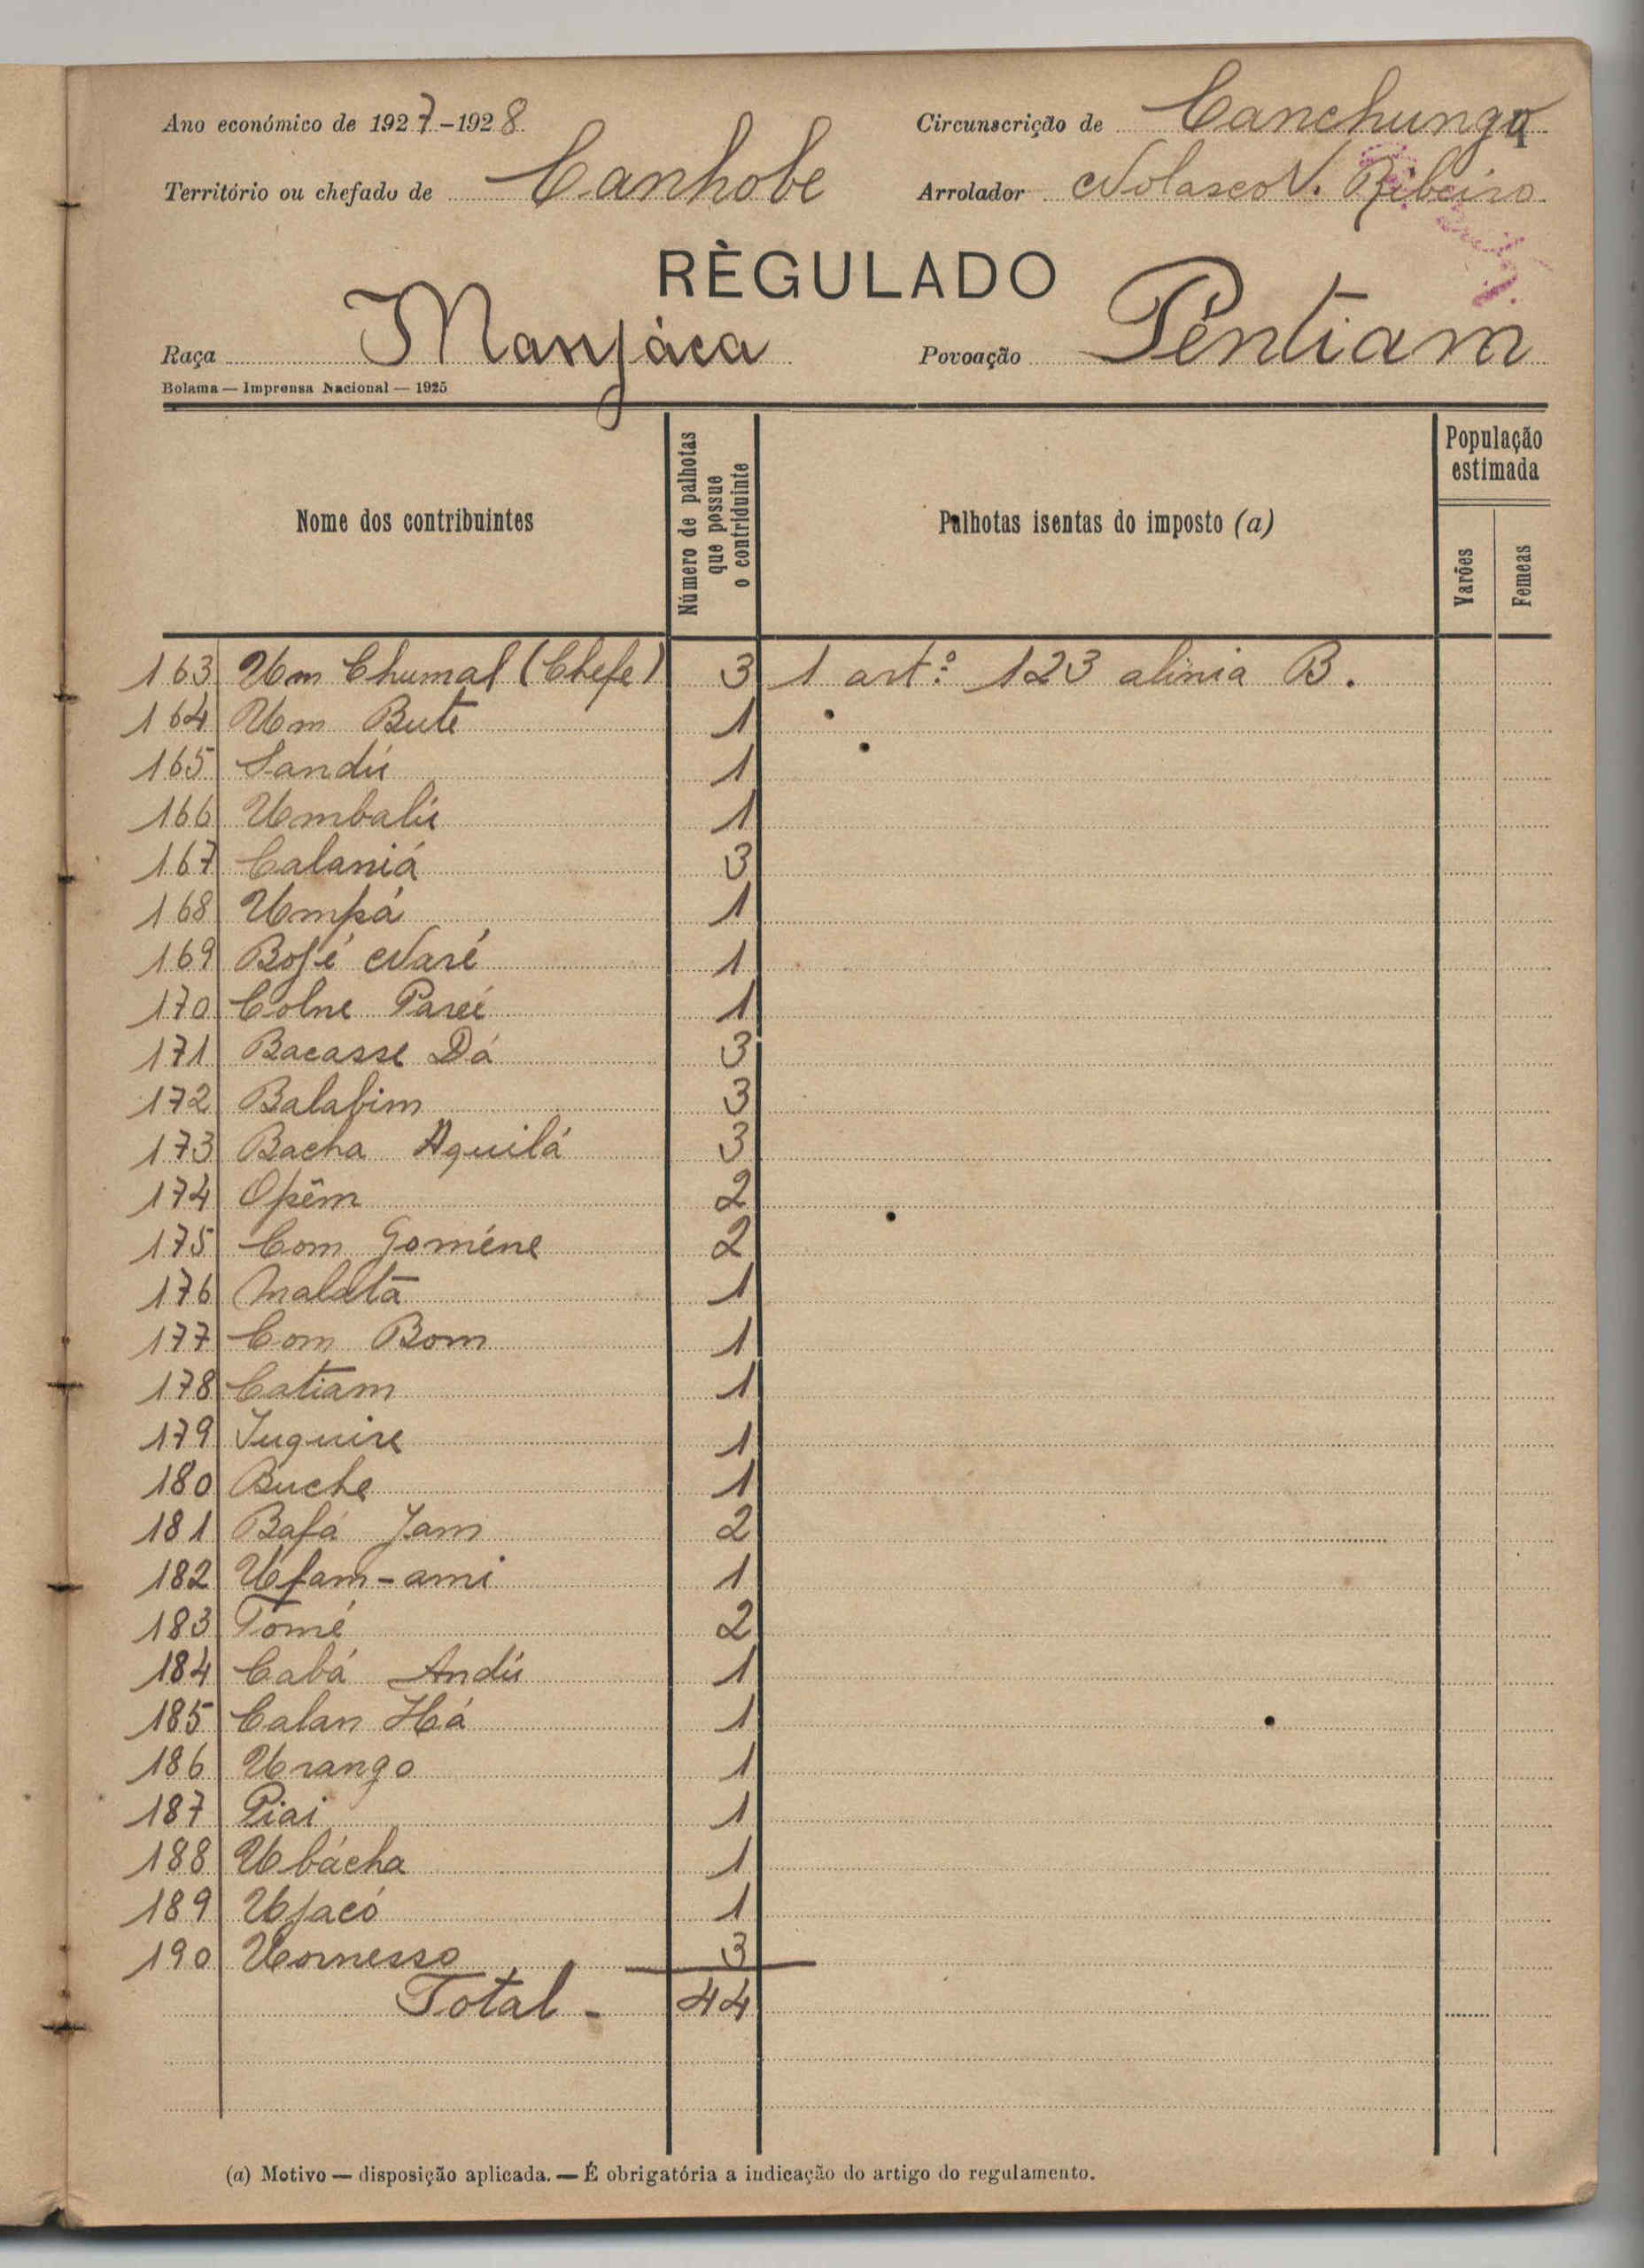 Ano económico de 1927-1928. Circunscrição de Canchungo
Território ou chefado de Canhobe Arrolador Nolasco V. Ribeiro
RÈGULADO
Raça Manjáca Povoação Pentiam
Bolama — Imprensa Nacional — 1925
Nome dos contribuintes
Número de palhotas
que possue
o contriduinte
Palhotas isentas do imposto (a)
População
estimada
Varões
Femeas
163 Um Chumal (Chefe) 3 1 artº 123 alinia B.
164 Um Bute 1
165 Sandú 1
166 Umbalú 1
167 Calaniá 3
168 Umpá 1
169 Bofé Naré 1
170 Colne Pareé 1
171 Bacasse Dá 3
172 Balabim 3
173 Bacha Aquilá 3
174 Opêm 2
175 Com Goméne 2
176 Malata 1
177 Com Bom 1
178 Catiam 1
179 Juquire 1
180 Buche 1
181 Bafá Jam 2
182 Ufam-ami 1
183 Tomé 2
184 Cabá Andú 1
185 Calan Há 1
186 Urango 1
187 Piai 1
188 Ubácha 1
189 Ujacó 1
190 Uornesso 3
Total - 44
(a) Motivo — disposição aplicada. — É obrigatória a indicação do artigo do regulamento.